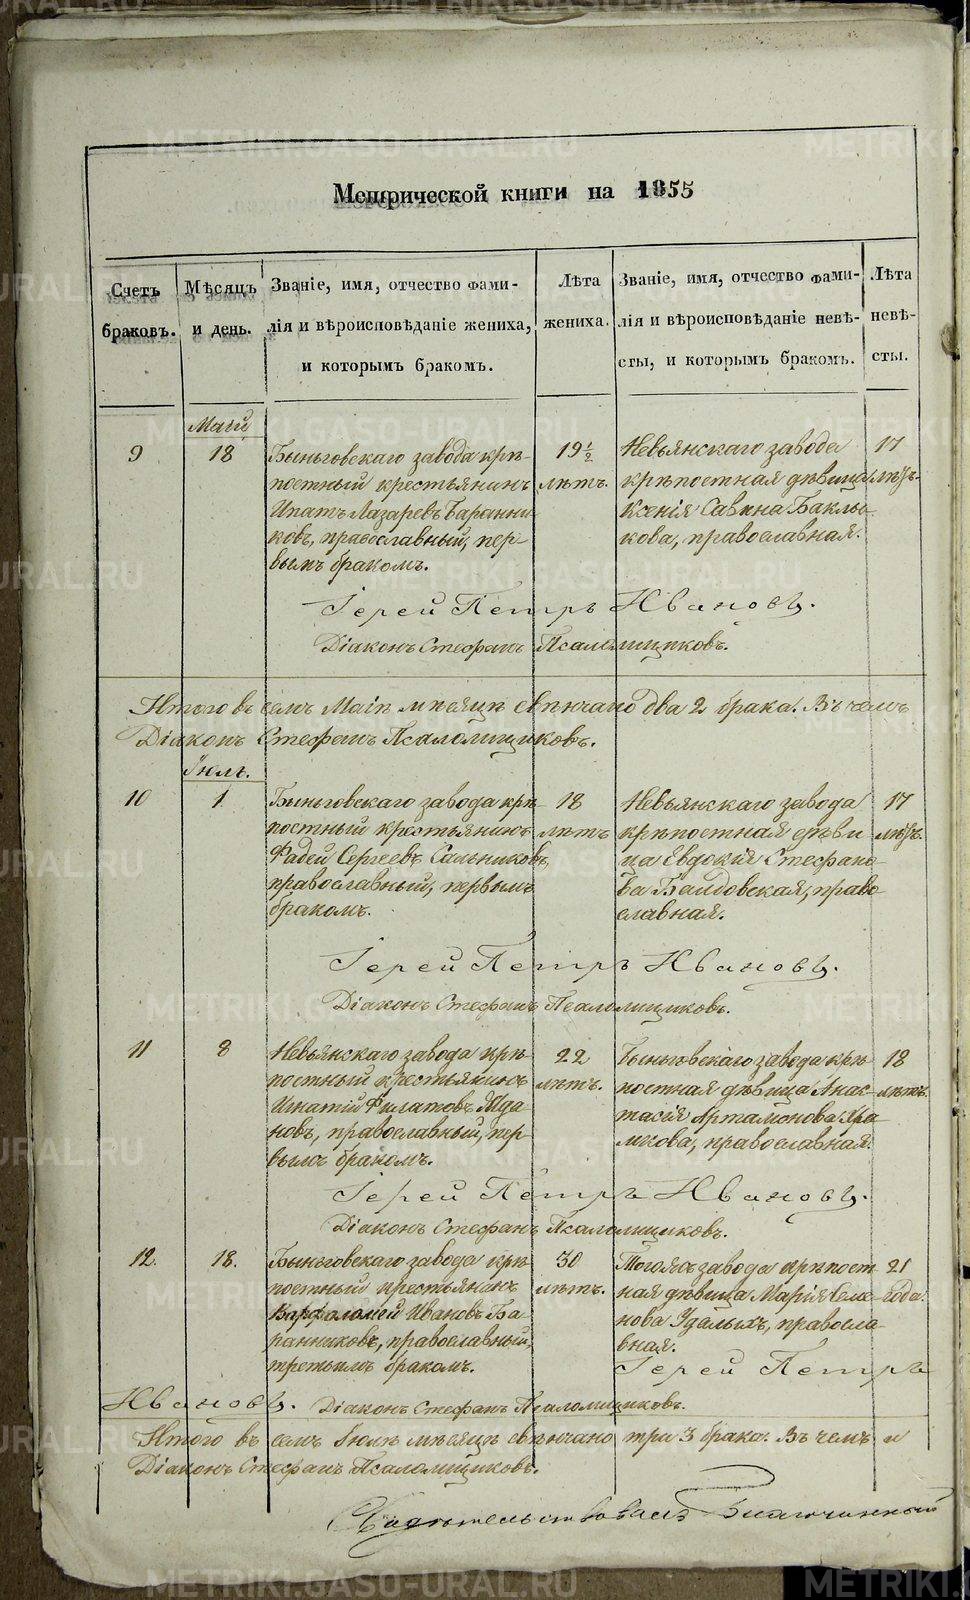 Метрической книги на 1855
Счетъ браковъ.
Мѣсяцъ и день.
Званіе, имя, отчество фами-
лія и вѣроисповѣданіе жениха,
и которымъ бракомъ.
Лѣта жениха.
Званіе, имя, отчество фами-
лія и вѣроисповѣданіе невѣ-
сты, и которымъ бракомъ.
Лѣта невѣ-
сты.
Маій
9
18
Быньговскаго завода крѣ-
постный крестьянинъ
Ипатъ Лазаревъ Баранни-
ковъ, православный, пер-
вымъ бракомъ.
19 1/2
лѣтъ.
Невьянскаго завода
крѣпостная дѣвица
Ксенія Савина Баклы-
кова, православная.
17
лѣтъ.
Іерей Петръ Ивановъ.
Діаконъ Стефанъ Псаломщиковъ.
Итого въ семъ Маіѣ мѣсяцѣ свѣнчано два 2 брака. Въ чемъ
Діаконъ Стефанъ Псаломщиковъ.
Іюль.
10
1
Быньговскаго завода крѣ-
постный крестьянинъ
Фадей Сергеевъ Сальниковъ,
православный, первымъ
бракомъ.
18
лѣтъ
Невьянскаго завода
крѣпостная дѣви
ца Евдокія Стефано-
ва православная.
17
лѣтъ.
Іерей Петръ Ивановъ.
Діаконъ Стефанъ Псаломщиковъ.
11
8
Невьянскаго завода крѣ
постный крестьянинъ
Игнатій Филатовъ Жда
новъ, православный, пер
вымъ бракомъ.
22
лѣтъ.
Быньговскаго завода крѣ
постная дѣвица Анас-
тасія Артамонова Хра
мкова, православная.
18
лѣтъ.
Іерей Петръ Ивановъ.
Діаконъ Стефанъ Псаломщиковъ.
12.
18.
Быньговскаго завода крѣ
постный крестьянинъ
Варфоломей Ивановъ Ба-
ранниковъ, православный,
третьимъ бракомъ.
30
лѣтъ.
Тогожъ завода крѣпост
ная дѣвица Марія Семе-
нова Удалыхъ, правосла-
вная.
21
года.
Іерей Петръ
Ивановъ. Діаконъ Стефанъ Псаломщиковъ.
Итого въ семъ Іюлѣ мѣсяцѣ свѣнчано три 3 брака. Въ чемъ и
Діаконъ Стефанъ Псаломщиковъ.
Свидѣтельствовалъ Благочинный
METRIKI.GASO-URAL.RU